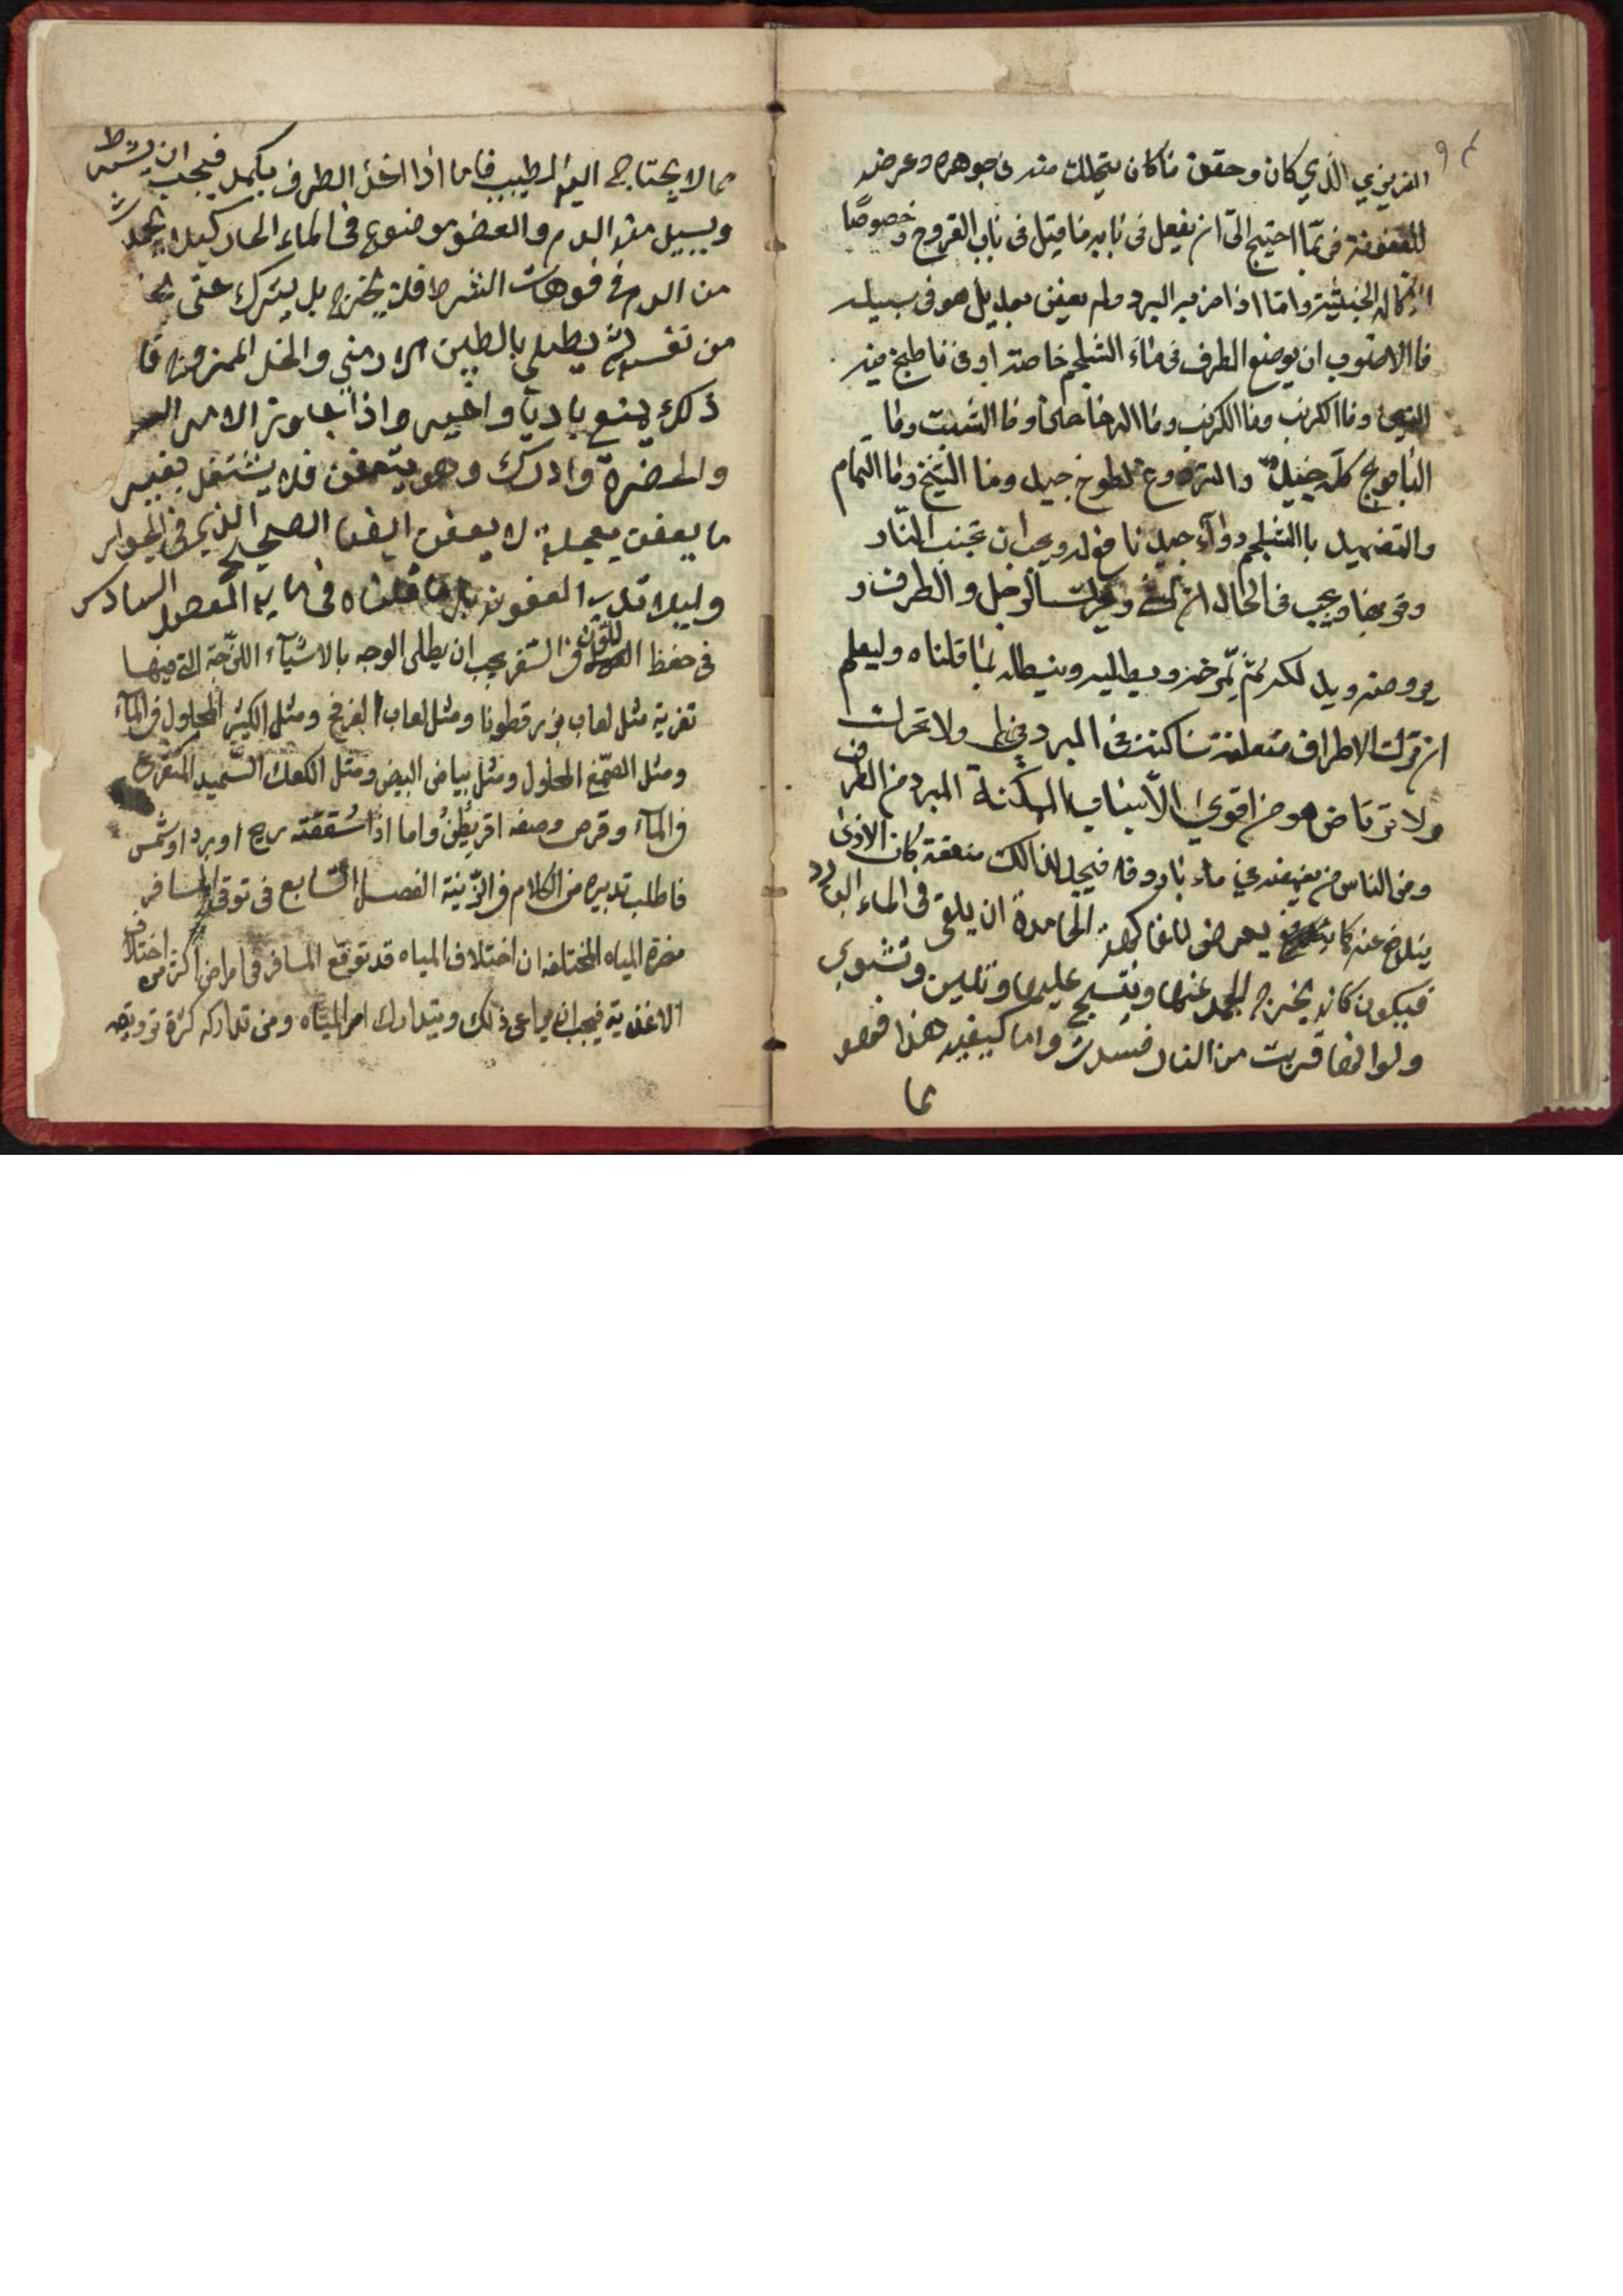 الغريزي الذي كان وحقن ما كان يتحلل منه في جوهره وعرضه
للعفونة فربما احتيج الى ان يفعل في بابه ما قيل في باب القروح وخصوصًا
الخبيثة واما اذا ضربه البرد ولم يعفن بعد بل هو في سبيله
فاالاصوب ان يوضع الطرف في ماء الثلج خاصة او في ما طبخ فيه
التين وماا الكرنب وماا الشبت وما
البابونج كله جيد والتر لطوخ جيد وماا الشيح وماا النمام
والتضميد باالشلجم دواء جيد نافع له ويجب ان تجنب النار
وقربها ويجب في الحال ان وتحرك الرجل والطرف و
يروضه ويدلكه ثم يمرخه ويطليه وينطله بما قلناه وليعلم
ان ترك الاطراف متعلقة ساكنة في البرد ولا تحرك
ولا ترتاض هو من اقوى الاسباب الممكنة البرد من الطرف
ومن الناس من يغمسه في ماء بارد فيجد لذالك منفعة كان الاذى
يندفع عنه كما يعرض للفاكهة الجامدة ان يلقى في الماء البارد
فيكون كانه يخرج الجمد عنها وينتسج عليها وتلين وتشوي
ولو انها قربت من النار فسدت واما كيفية هذا فهو
مما
مما لا يحتاج اليه الطبيب فاما اذا اخذ الطرف يكمد فيجب ان يشرط
ويسيل منه الدم والعضو موضوع في الماء الحار كيلا يجمد شيء
من الدم في فوهات الشرط فلا يخرج بل يترك حتى
من نفسه ثم يطلى بالطين الارمني والخل الممزوج فا
ذلك يمنع باديا واخيرا واذا جاوز الامر
والخضرة وادرك وهو يتعفن فلا يشتغل بغير
ما يعفن بعجلة لا يعفن ايضا الصحيح الذي في الجوار
وليدا تدبير العفونة بل ما قلناه في بابه الفصل السادس
في حفظ اللون في السفر يجب ان يطلى الوجه بالاشياء اللزجة التي فيها
تغرية مثل لعاب بزرقطونا ومثل لعاب الفرفخ ومثل الكثيرا المحلول في الماء
ومثل الصمغ المحلول ومثل بياض البيض ومثل الكعك السميد المنقوع
في الماء وقرص وصفه اقريطن واما اذا شققته ريح او برد او شمس
فاطلب تدبيره من الكلام في الزينة الفصل السابع في توقي المسافر
مضرة المياه المختلفه ان اختلاف المياه قد توقع المسافر في امراض اكثر من اختلاف
الاغذية فيجب ان يراعى ذلك ويتدارك امر المياه ومن تداركه كثرة ترويقه